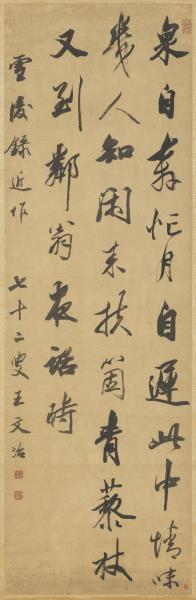 泉自奔忙月自遲此中情味
幾人知閑来扶箇青藜杖
又到鄰翁夜話時
雪後錄近作 七十二叟王文治